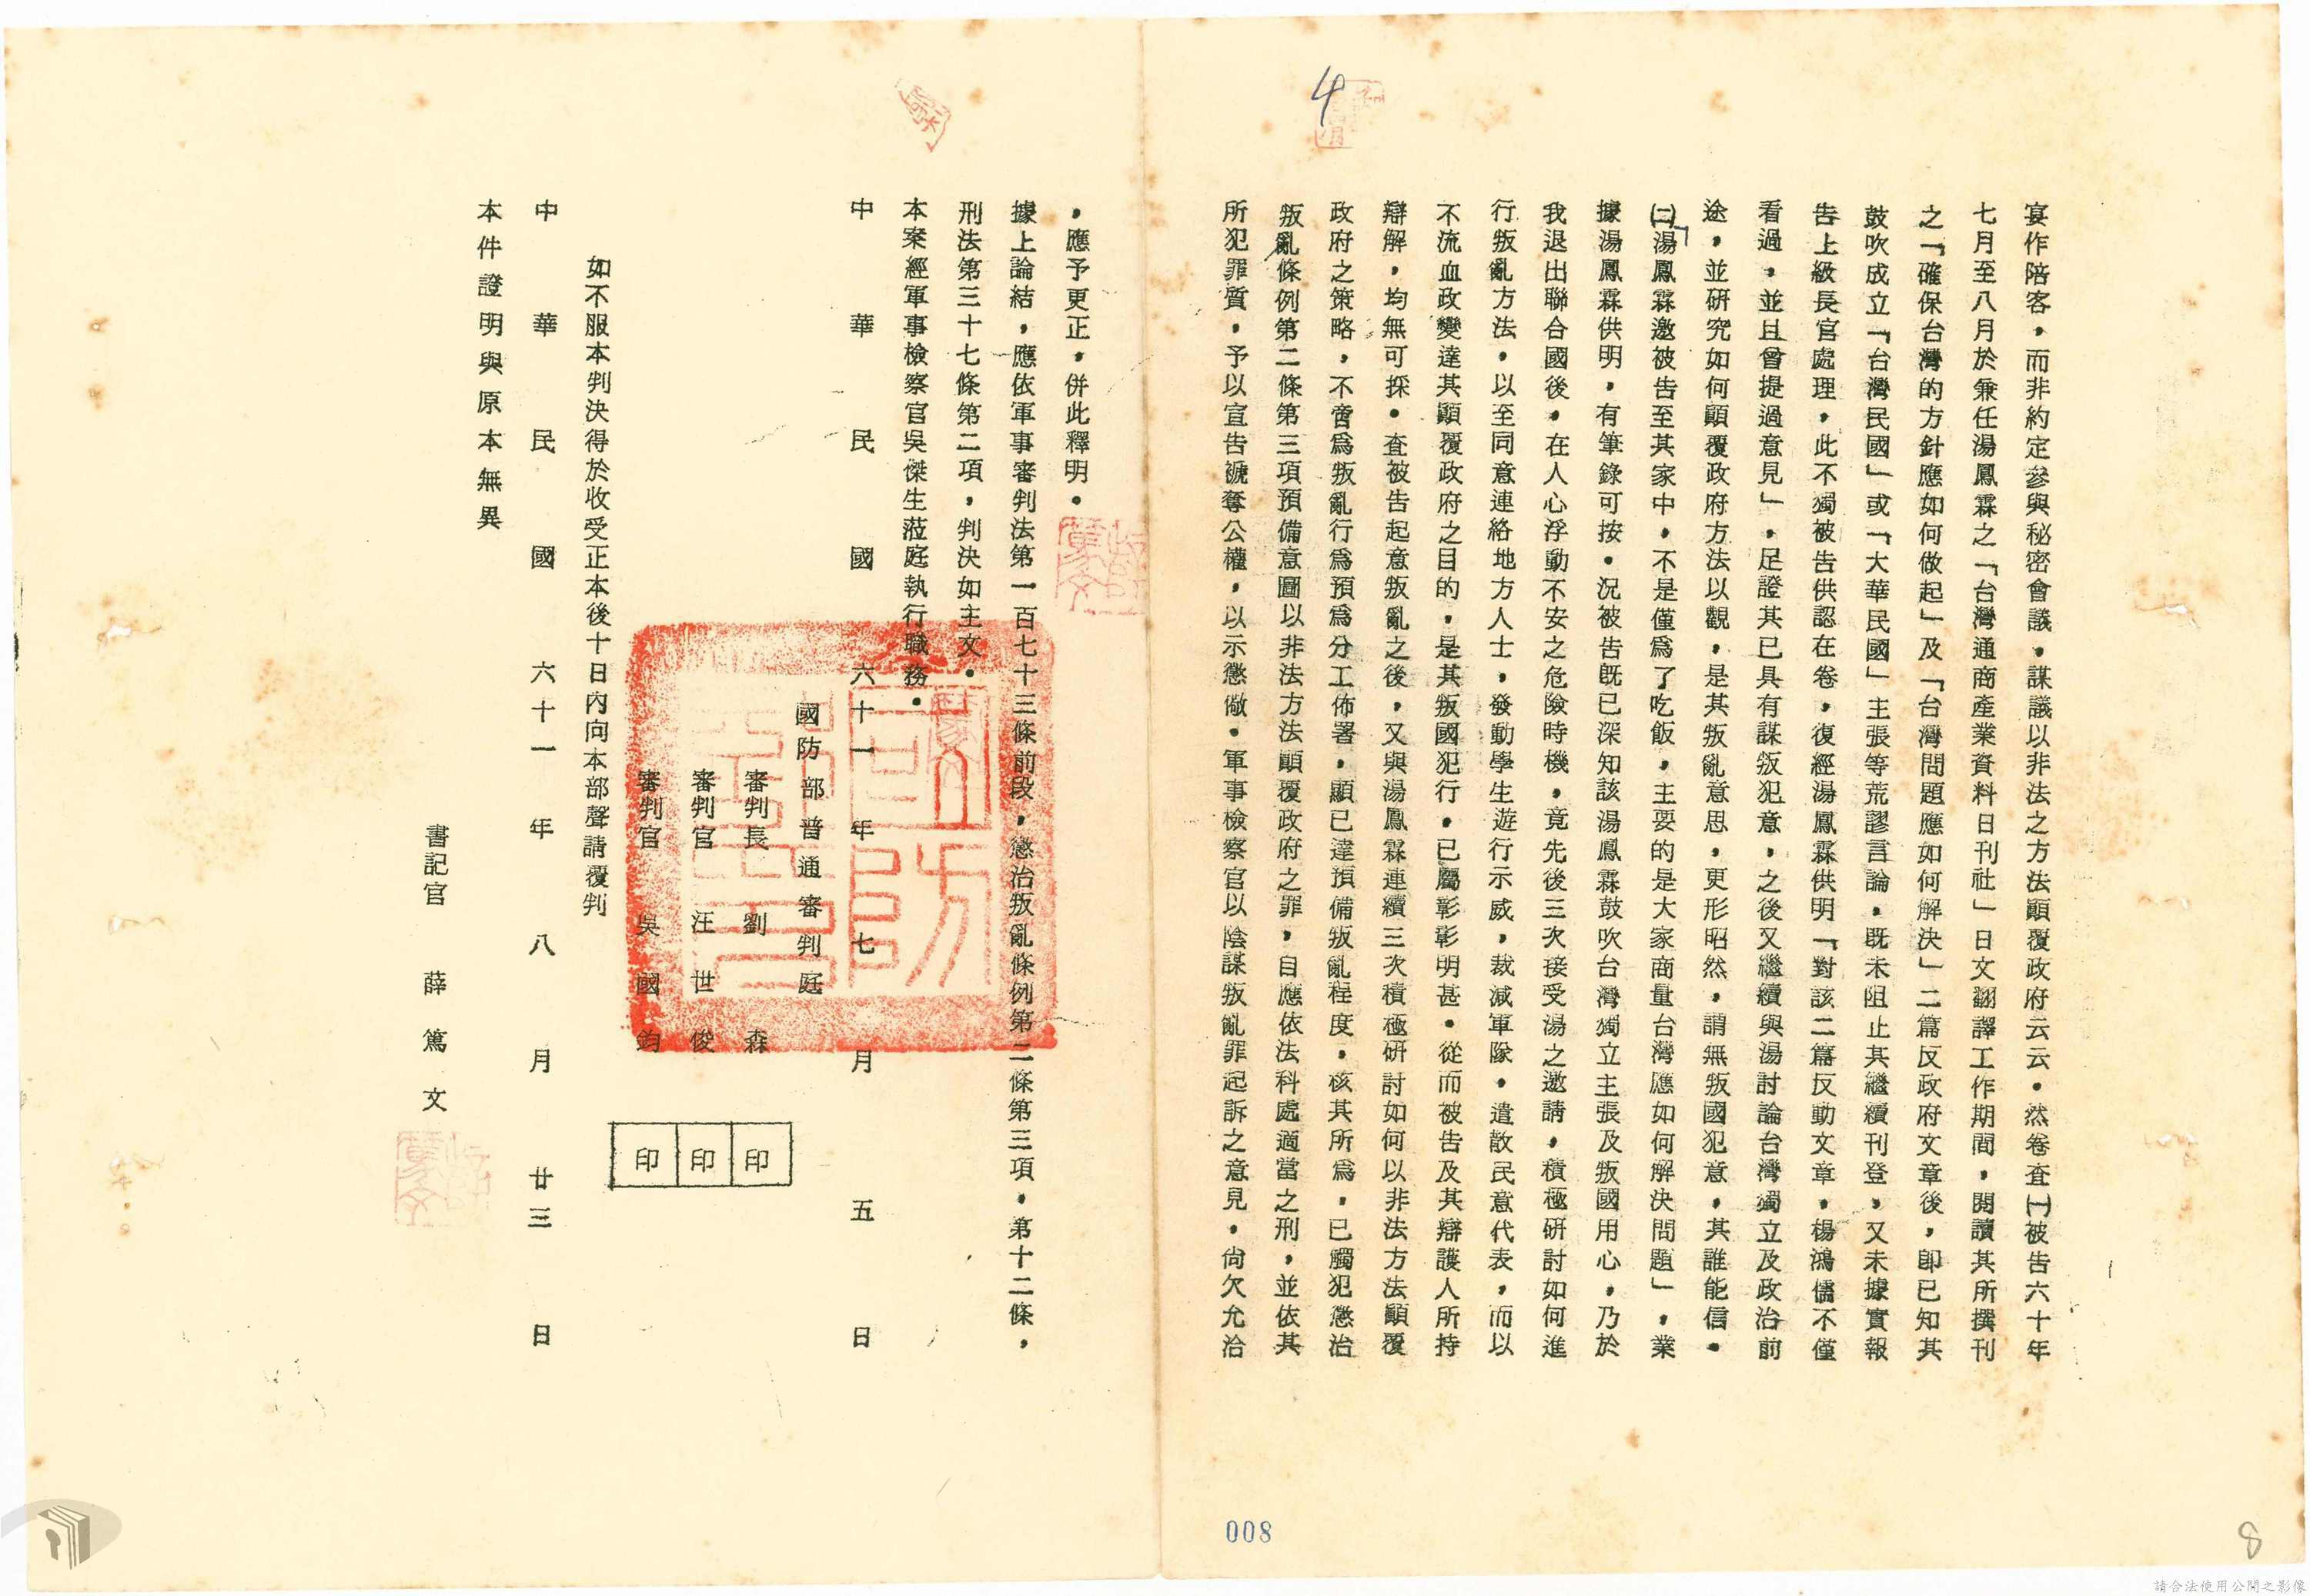 4
宴作陪客，而非約定參與秘密會議，謀議以非法之方法顛覆政府云云。然卷查㈠被告六十年
七月至八月於兼任湯鳳霖之「台灣通商產業資料日刊社」日文翻譯工作期間，閱讀其所撰刊
之「確保台灣的方針應如何做起」及「台灣問題應如何解決」二篇反政府文章後，即已知其
鼓吹成立「台灣民國」或「大華民國」主張等荒謬言論，既未阻止其繼續刊登，又未據實報
告上級長官處理，此不獨被告供認在卷，復經湯鳳霖供明「對該二篇反動文章，楊鴻儒不僅
看過，並且曾提過意見」，足證其已具有謀叛犯意，之後又繼續與湯討論台灣獨立及政治前
途，並研究如何顛覆政府方法以觀，是其叛亂意思，更形昭然，謂無叛國犯意，其誰能信。
㈡湯鳳霖邀被告至其家中，不是僅為了吃飯，主要的是大家商量台灣應如何解決問題」，業
據湯鳳霖供明，有筆錄可按。況被告既已深知該湯鳳霖鼓吹台灣獨立主張及叛國用心，乃於
我退出聯合國後，在人心浮動不安之危險時機，竟先後三次接受湯之邀請，積極研討如何進
行叛亂方法，以至同意連絡地方人士，發動學生遊行示威，裁減軍隊，遣散民意代表，而以
不流血政變達其顛覆政府之目的，是其叛國犯行，已屬彰彰明甚。從而被告及其辯護人所持
辯解，均無可採。查被告起意叛亂之後，又與湯鳳霖連續三次積極研討如何以非法方法顛覆
政府之策略，不啻為叛亂行為預為分工佈署，顯已達預備叛亂程度，核其所為，已觸犯懲治
叛亂條例第二條第三項預備意圖以非法方法顛覆政府之罪，自應依法科處適當之刑，並依其
所犯罪質，予以宣告褫奪公權，以示懲儆。軍事檢察官以陰謀叛亂罪起訴之意見，尚欠允洽
，應予更正，併此釋明。
據上論結，應依軍事審判法第一百七十三條前段，懲治叛亂條例第二條第三項，第十二條，
刑法第三十七條第二項，判決如主文。
本案經軍事檢察官吳傑生蒞庭執行職務。
中華民國六十一年七月五日
國防部普通審判庭
審判長 劉森 印
審判官 汪世俊 印
審判官 吳國鈞 印
如不服本判決得於收受正本後十日內向本部聲請覆判
中華民國六十一年八月廿三日
本件證明與原本無異
書記官 薛篤文
008
8
請合法使用公開之影像